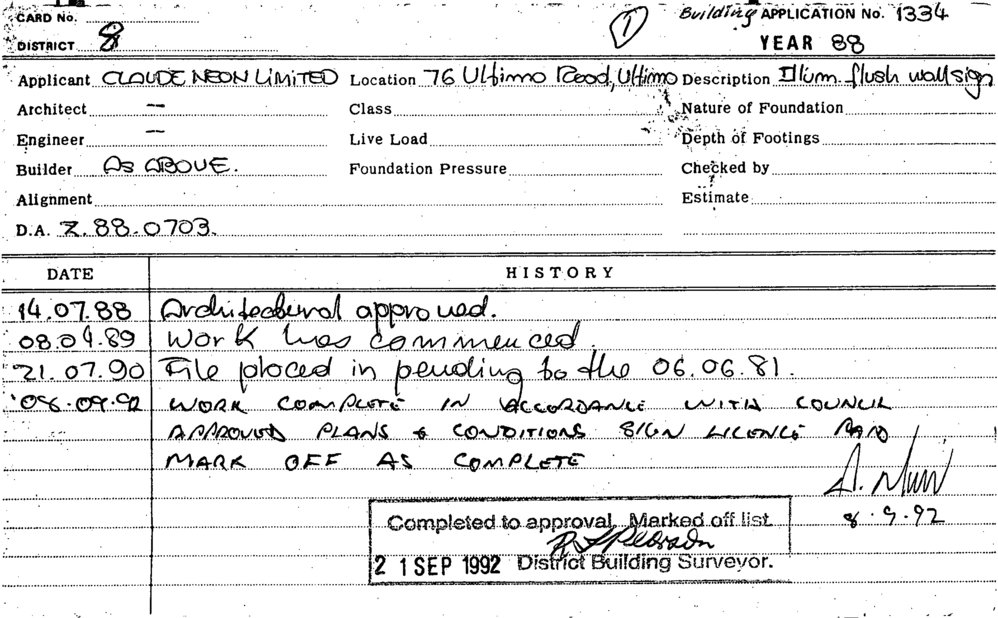 CARD No.
1
Building APPLICATION No. 1334
DISTRICT 8
YEAR 88
Applicant CLAUDE NEON LIMITED Location 76 Ultimo Road, Ultimo Description Illum. flush wall sign
Architect — Class Nature of Foundation
Engineer — Live Load Depth of Footings
Builder AS ABOVE. Foundation Pressure Checked by
Alignment Estimate
D.A. Z.88.0703.
DATE HISTORY
14.07.88 Architectural approved.
08.09.89 Work has commenced.
21.07.90 File placed in pending to the 06.06.81.
08.09.92 WORK COMPLETE IN ACCORDANCE WITH COUNCIL
APPROVED PLANS & CONDITIONS SIGN LICENCE PAID
MARK OFF AS COMPLETE
8.9.92
Completed to approval. Marked off list
21 SEP 1992 District Building Surveyor.